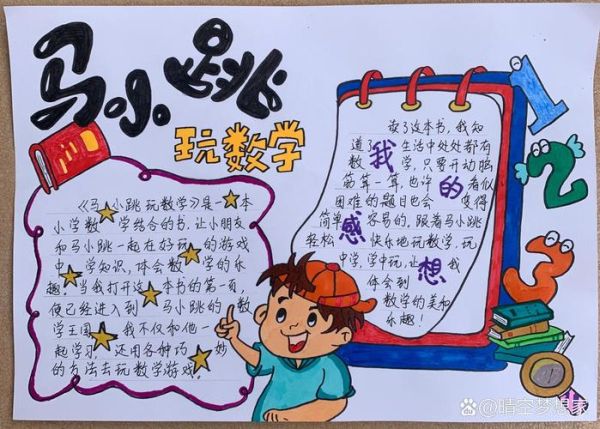 马小跳
玩数学
《马小跳玩数学》是一本
小学数学结合的书,让小朋友
和马小跳一起在好玩的游戏
中学知识,体会数学的乐
趣。当我打开这本书的第一页,
便已经进入到马小跳的数
学王国。我不仅和他一
起学习,还用各种巧妙
的方法去玩数学游戏。
读了这本书,我知
道了生活中处处都有
数学,只要开动脑
筋算一算,也许看似
困难的题目也会变得
简单容易的,跟着马小跳
轻松快乐地玩数学,玩
中学,学中玩,让我
体会到
数学的美和
乐趣!
我的感想
1
2
3
晴空梦想家